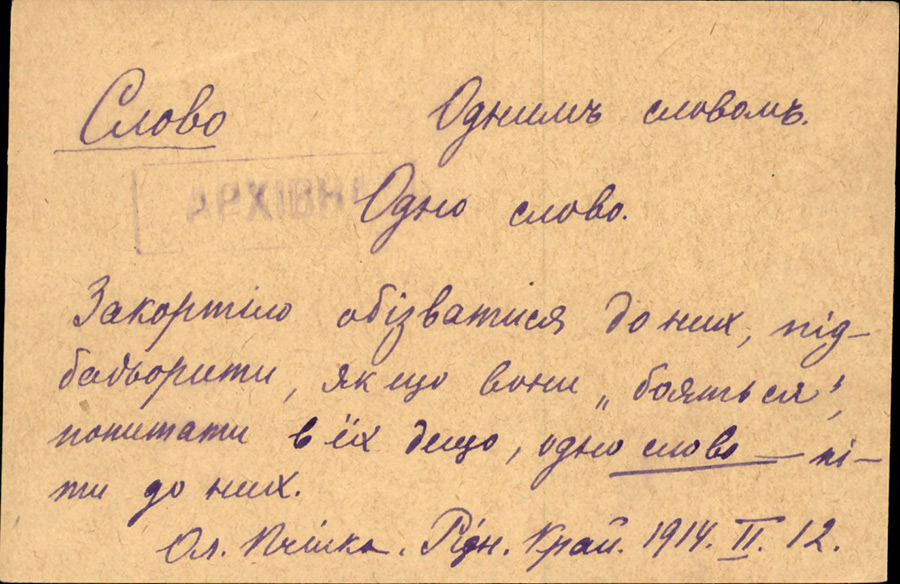 Слово
Одним словомъ.
АРХІВН
Одно слово.
Закортіло обізватися до них, під-
бадьорити, як що вони „бояться”,
попитати в їх дещо, одно слово – пі-
ти до них.
Ол. Пчілка. Рідн. Край. 1914. II. 12.